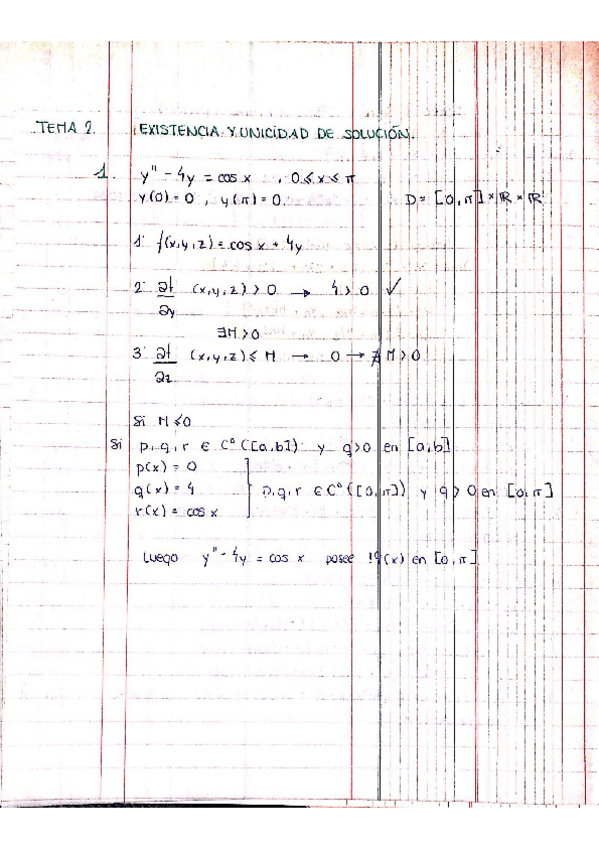 TEMA 2. EXISTENCIA Y UNICIDAD DE SOLUCIÓN.
1. y'' - 4y = cos x , 0 ≤ x ≤ π
y(0) = 0 , y(π) = 0. D = [0,π] × ℝ × ℝ
1· f(x,y,z) = cos x + 4y
2· ∂f/∂y (x,y,z) > 0 → 4 > 0 ✓
∃M > 0
3· ∂f/∂z (x,y,z) ≤ M → 0 → ∄ M > 0
Si M ≤ 0
Si p,q,r ∈ C⁰([a,b]) y q>0 en [a,b]
p(x) = 0
q(x) = 4 p,q,r ∈ C⁰([0,π]) y q > 0 en [0,π]
r(x) = cos x
Luego y'' - 4y = cos x posee !φ(x) en [0,π]